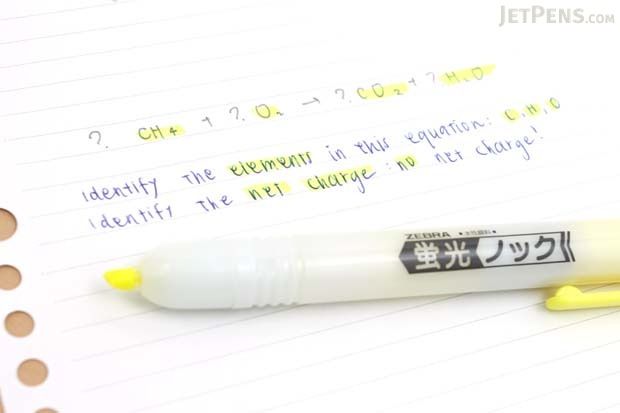 JETPENS.COM
?. CH4 + ?. O2 → ?. CO2 + ?. H2O
identify the elements in this equation: C, H, O
identify the net charge: no net charge!
ZEBRA
蛍光ノック